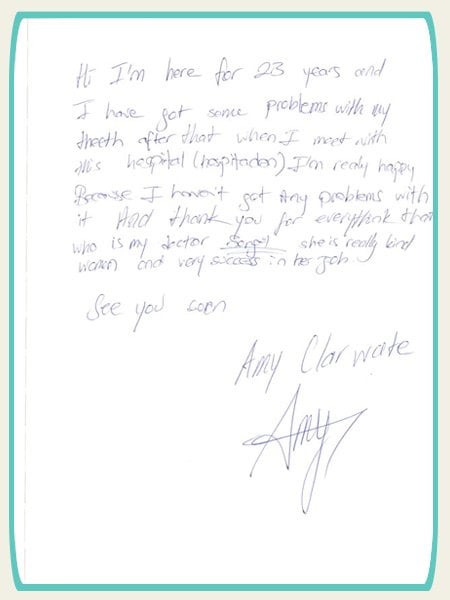 Hi I'm here for 23 years and
I have got some problems with my
theeth after that when I meet with
this hospital (hospitadent) I'm realy happy
Because I haven't got Any problems with
it And thank you for everythink that
who is my doctor she is really kind
women and very success in her job.
See you soon
Amy Clarwate
Amy